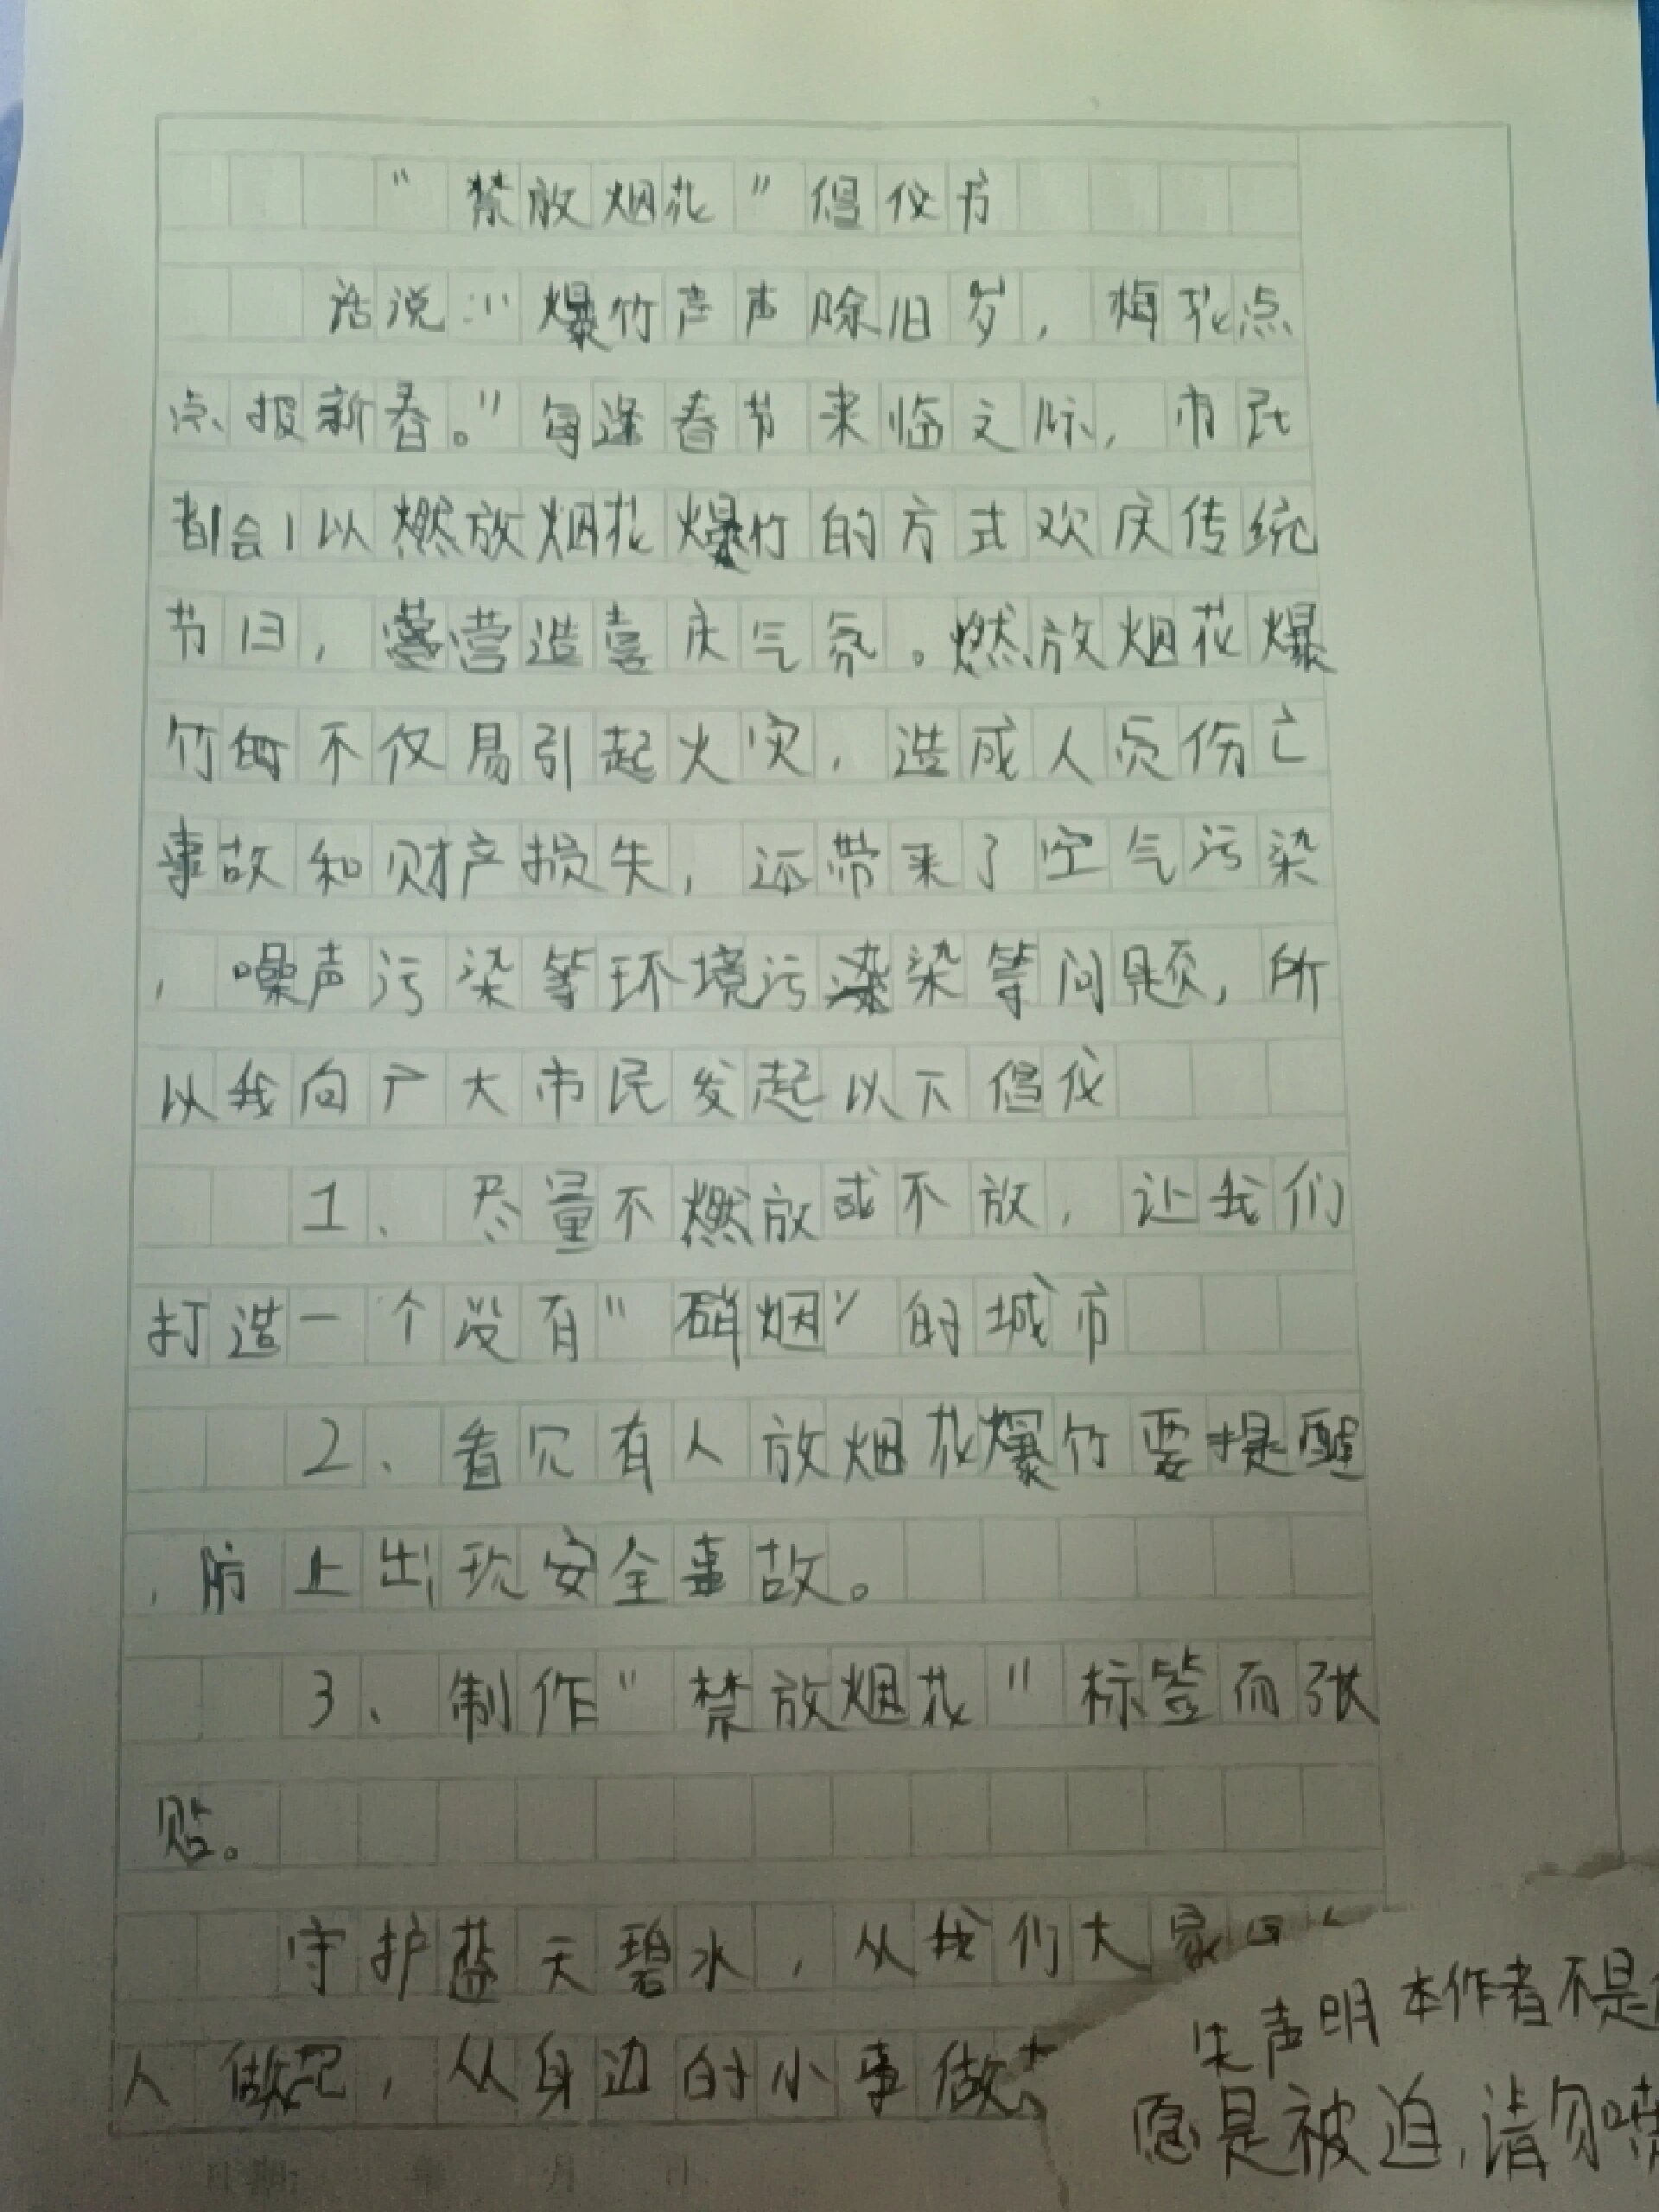 “禁放烟花”倡仪书
话说：“爆竹声声除旧岁，梅花点
点报新春。”每逢春节来临之际，市民
都会以燃放烟花爆竹的方式欢庆传统
节日，营造喜庆气氛。燃放烟花爆
竹的不仅易引起火灾，造成人员伤亡
事故和财产损失，还带来了空气污染
，噪声污染等环境污染等问题，所
以我向广大市民发起以下倡仪
1、尽量不燃放或不放，让我们
打造一个没有“硝烟”的城市
2、看见有人放烟花爆竹要提醒
，防止出现安全事故。
3、制作“禁放烟花”标签而张
贴。
守护蓝天碧水，从我们大家
人做起，从身边的小事做
声明本作者不是
愿是被迫，请勿喷